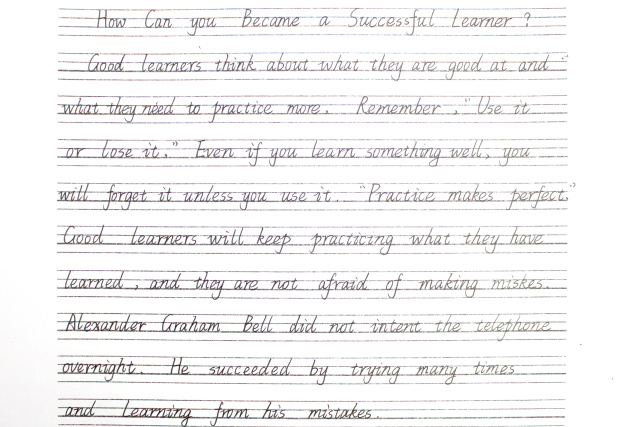 How Can you Became a Successful Learner ?
Good learners think about what they are good at and
what they need to practice more. Remember ," Use it
or lose it." Even if you learn something well, you
will forget it unless you use it. "Practice makes perfect."
Good learners will keep practicing what they have
learned , and they are not afraid of making miskes.
Alexander Graham Bell did not intent the telephone
overnight. He succeeded by trying many times
and learning from his mistakes.